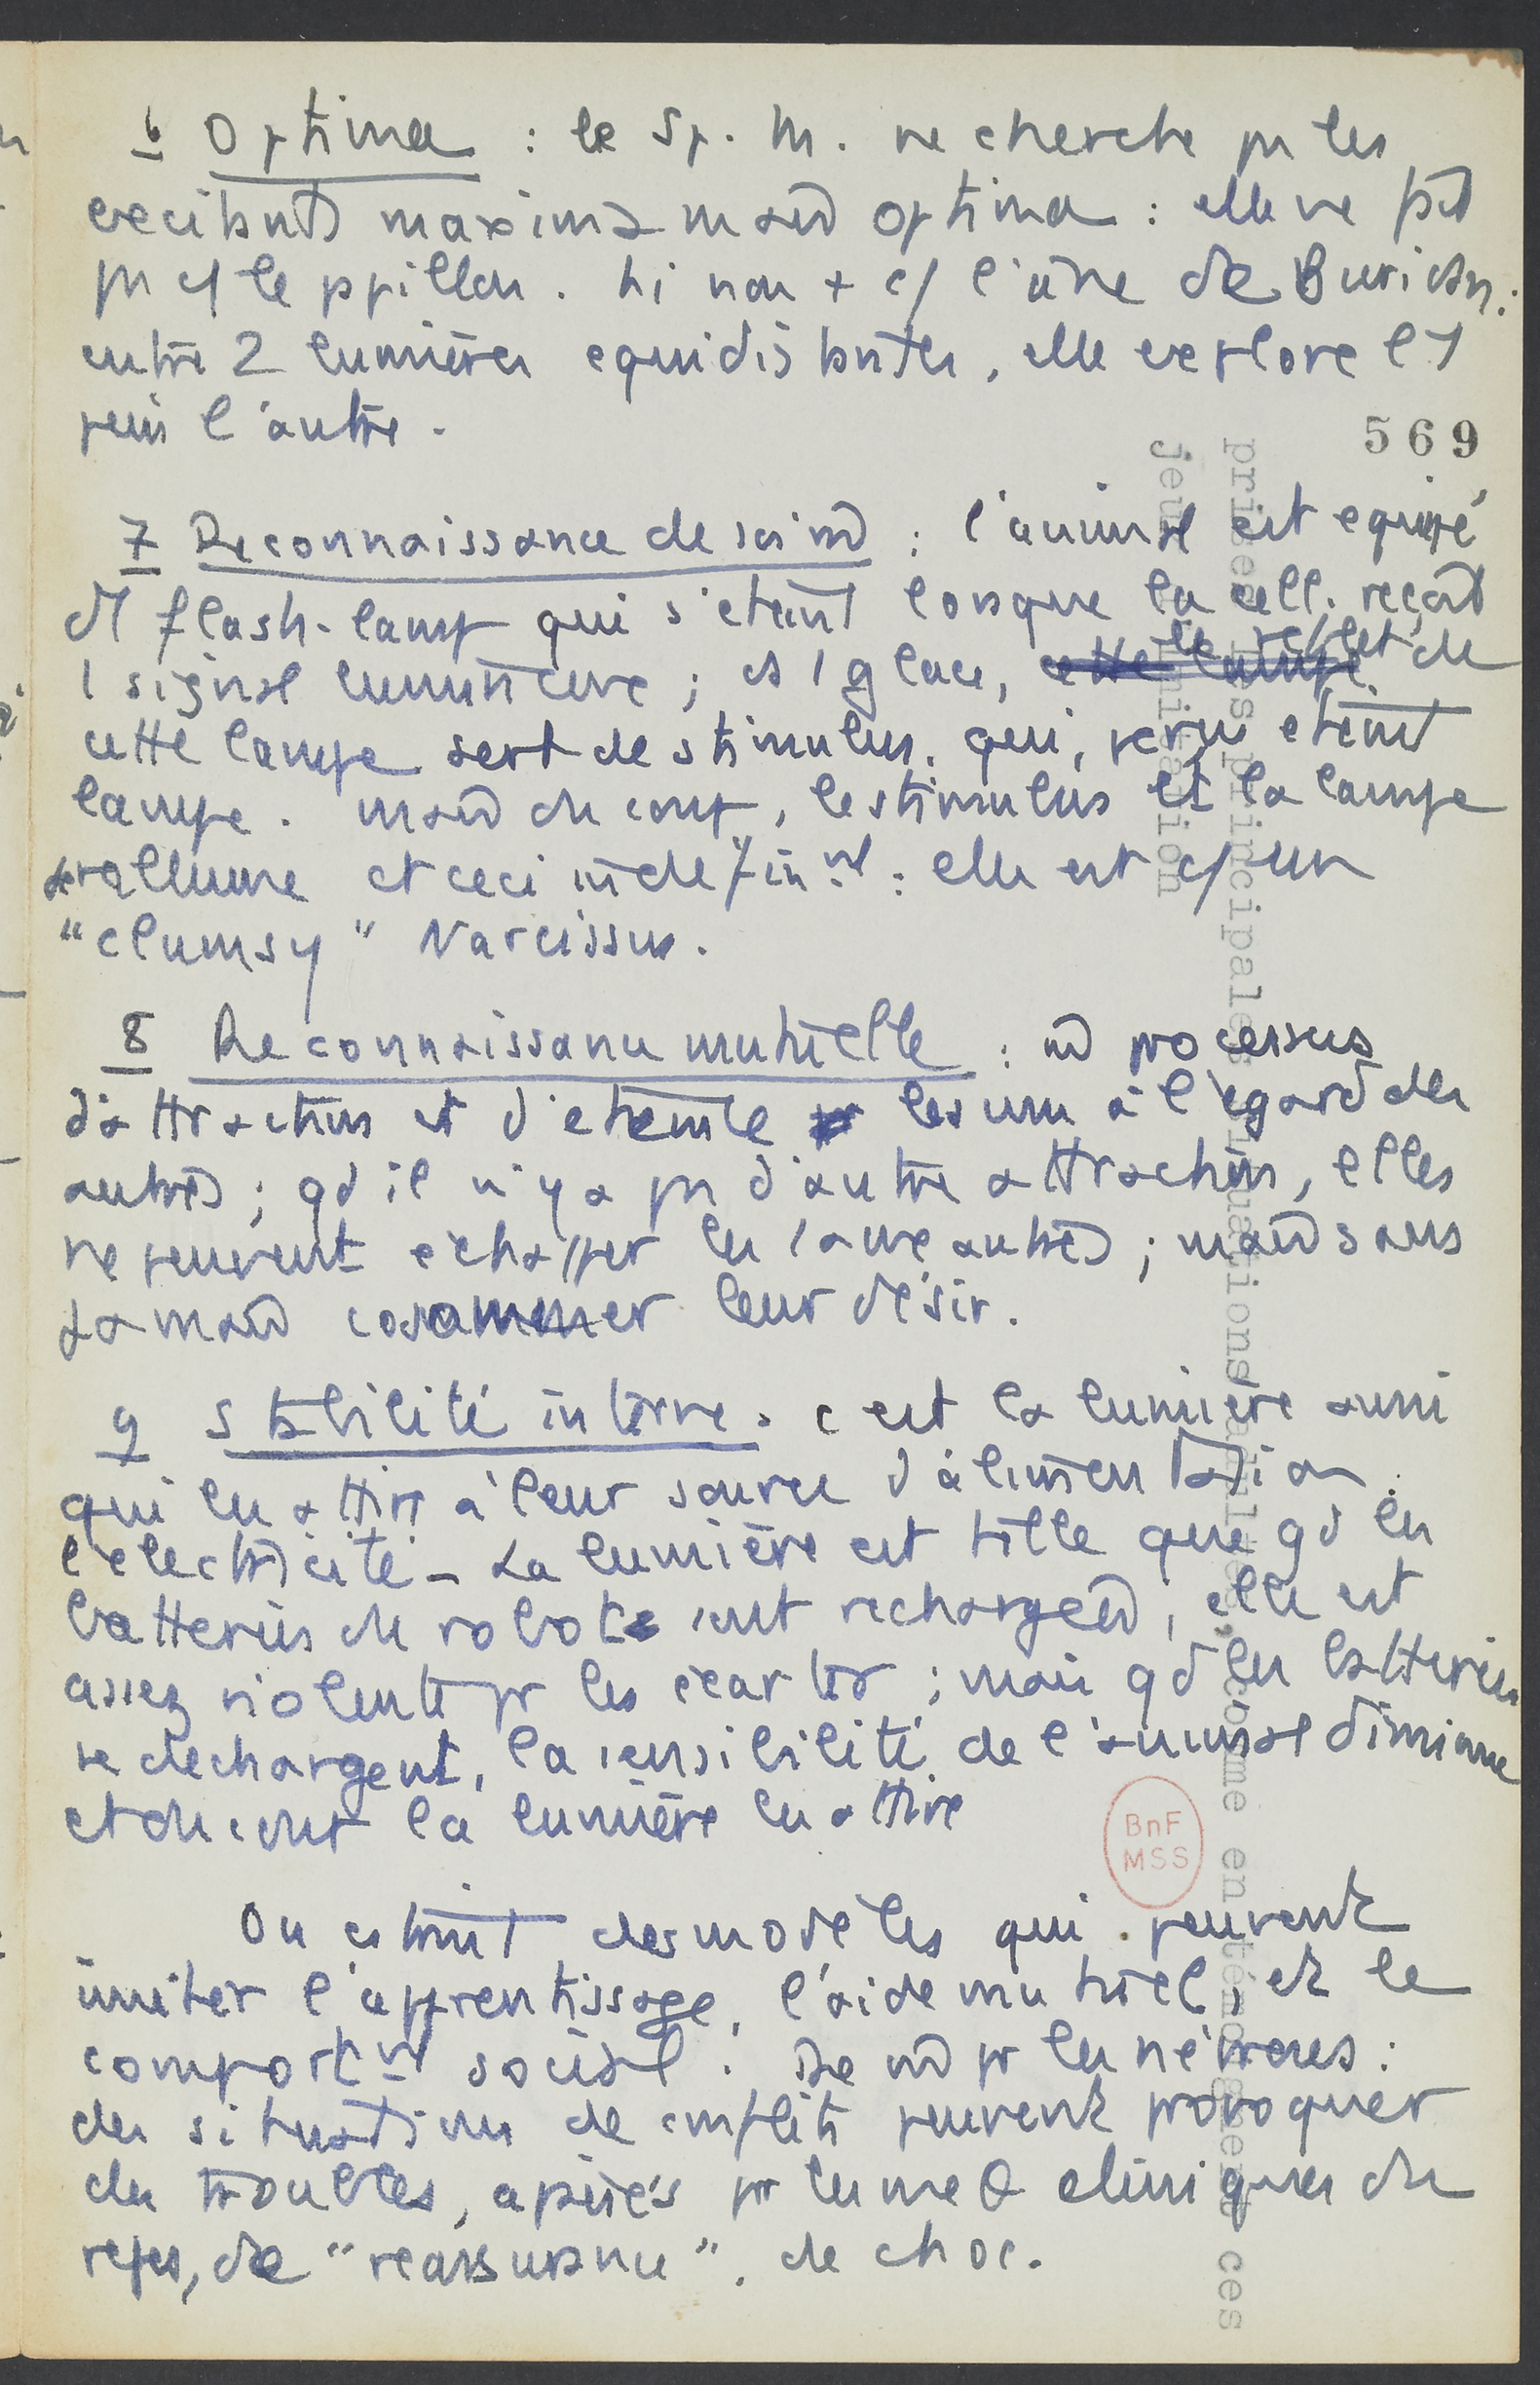 6 Optima : le Sp. M. ne cherche pas les
excitants maxima mais optima : elle ne fait
pas c/ le papillon. Ni non + c/ l'âne de Buridan :
entre 2 lumières equidistantes, elle explore l'1
puis l'autre.
569
7 Reconnaissance de soi m̂ : l'animal est equipé
d'1 flash-lamp qui s'eteint lorsque la cell. reçoit
1 signal lumineux ; ds 1 glace, le reflet de
cette lampe sert de stimulus. qui, perçu eteint
lampe. mais du coup, le stimulus et la lampe
se rallume et ceci indefinimt : elle est c/ un
"clumsy" Narcissus.
8 Reconnaissance mutuelle : m̂ processus
d'attraction et d'eteinte les uns à l'égard des
autres ; qd il n'y a pas d'autre attraction, elles
ne peuvent échapper les 1 aux autres ; mais sans
jamais consommer leur désir.
9 Stabilité interne. c'est la lumière aussi
qui les attire à leur source d'alimentation.
l'electricité – La lumière est telle que qd les
batteries du robot sont rechargées, elle est
assez violente pr les écarter ; mais qd les batteries
se dechargent, la sensibilité de l'animal diminue
et du coup la lumière les attire
BnF
MSS
On obtient des modèles qui peuvent
imiter l'apprentissage, l'aide mutuel, et le
comportmt social. De m̂ pr les névroses :
des situations de conflits peuvent provoquer
des troubles, apaisés pr les med cliniques du
repos, de "reassurance". de choc.